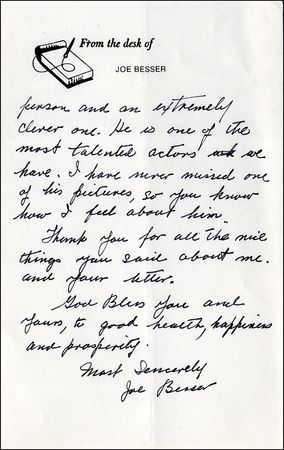 From the desk of
JOE BESSER
person and an extremely
clever one. He is one of the
most talented actors we
have. I have never missed one
of his pictures, so you know
how I feel about him.
Thank you for all the nice
things you said about me.
and your letter.
God Bless you and
yours, to good health, happiness
and prosperity.
Most Sincerely
Joe Besser